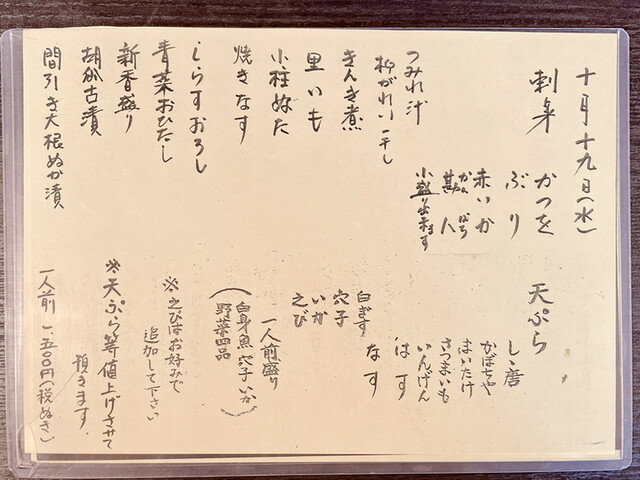 十月十九日(水)
刺身
かつを
ぶり
赤いか
かんぱち
勘八
小盛り出来ます
つみれ汁
柳がれい一干し
きんき煮
里いも
小柱ぬた
焼きなす
しらすおろし
青菜おひたし
新香盛り
胡瓜古漬
間引き大根ぬか漬
天ぷら
しし唐
かぼちゃ
まいたけ
さつまいも
いんげん
はす
なす
白ぎす
穴子
いか
えび
一人前盛り
(白身魚 穴子 いか
野菜四品)
※えびはお好みで
追加して下さい
※天ぷら等値上げさせて
頂きます.
一人前 一、五〇〇円(税ぬき)